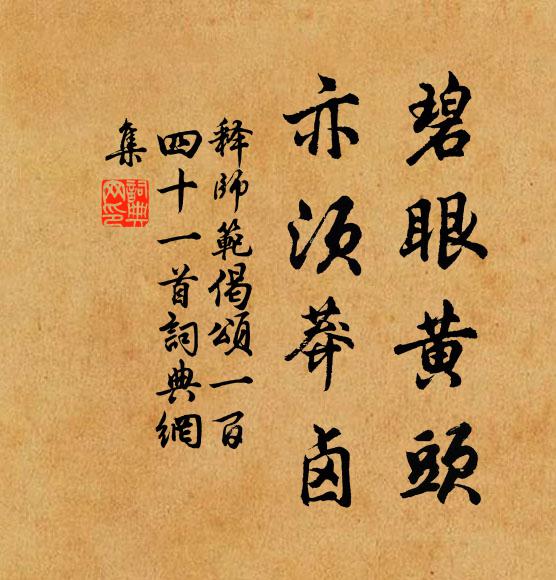 碧眼黄頭
亦須莽卤
釋師範偈頌一百
四十一首詞典網
集
詞典网印